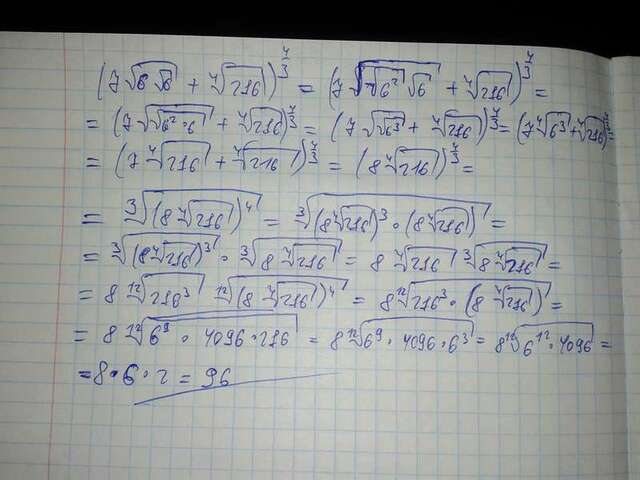 (7√(6√6) + ⁴√216)^(4/3) = (7√(√6² √6) + ⁴√216)^(4/3) =
= (7√(√(6²·6)) + ⁴√216)^(4/3) = (7√(√6³) + ⁴√216)^(4/3) = (7⁴√6³ + ⁴√216)^(4/3) =
= (7⁴√216 + ⁴√216)^(4/3) = (8⁴√216)^(4/3) =
= ³√((8⁴√216)⁴) = ³√((8⁴√216)³·(8⁴√216)) =
= ³√((8⁴√216)³) · ³√(8⁴√216) = 8⁴√216 ³√(8⁴√216) =
= 8¹²√216³ ¹²√((8⁴√216)⁴) = 8¹²√(216³·(8⁴√216)) =
= 8¹²√(6⁹·4096·216) = 8¹²√(6⁹·4096·6³) = 8¹²√(6¹²·4096) =
= 8·6·2 = 96